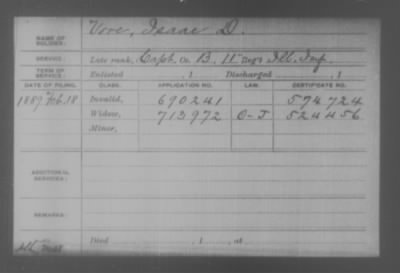 NAME OF SOLDIER: Vore, Isaac D.
SERVICE: Late rank, Capt. Co. B, 11" Reg't Ill. Inf.
TERM OF SERVICE: Enlisted , 1 Discharged , 1
DATE OF FILING. CLASS. APPLICATION NO. LAW. CERTIFICATE NO.
1889 Feb. 18 Invalid, 690241 574724
Widow, 713972 O-J 524456
Minor,
ADDITIONAL SERVICES:
REMARKS:
Died , 1 , at